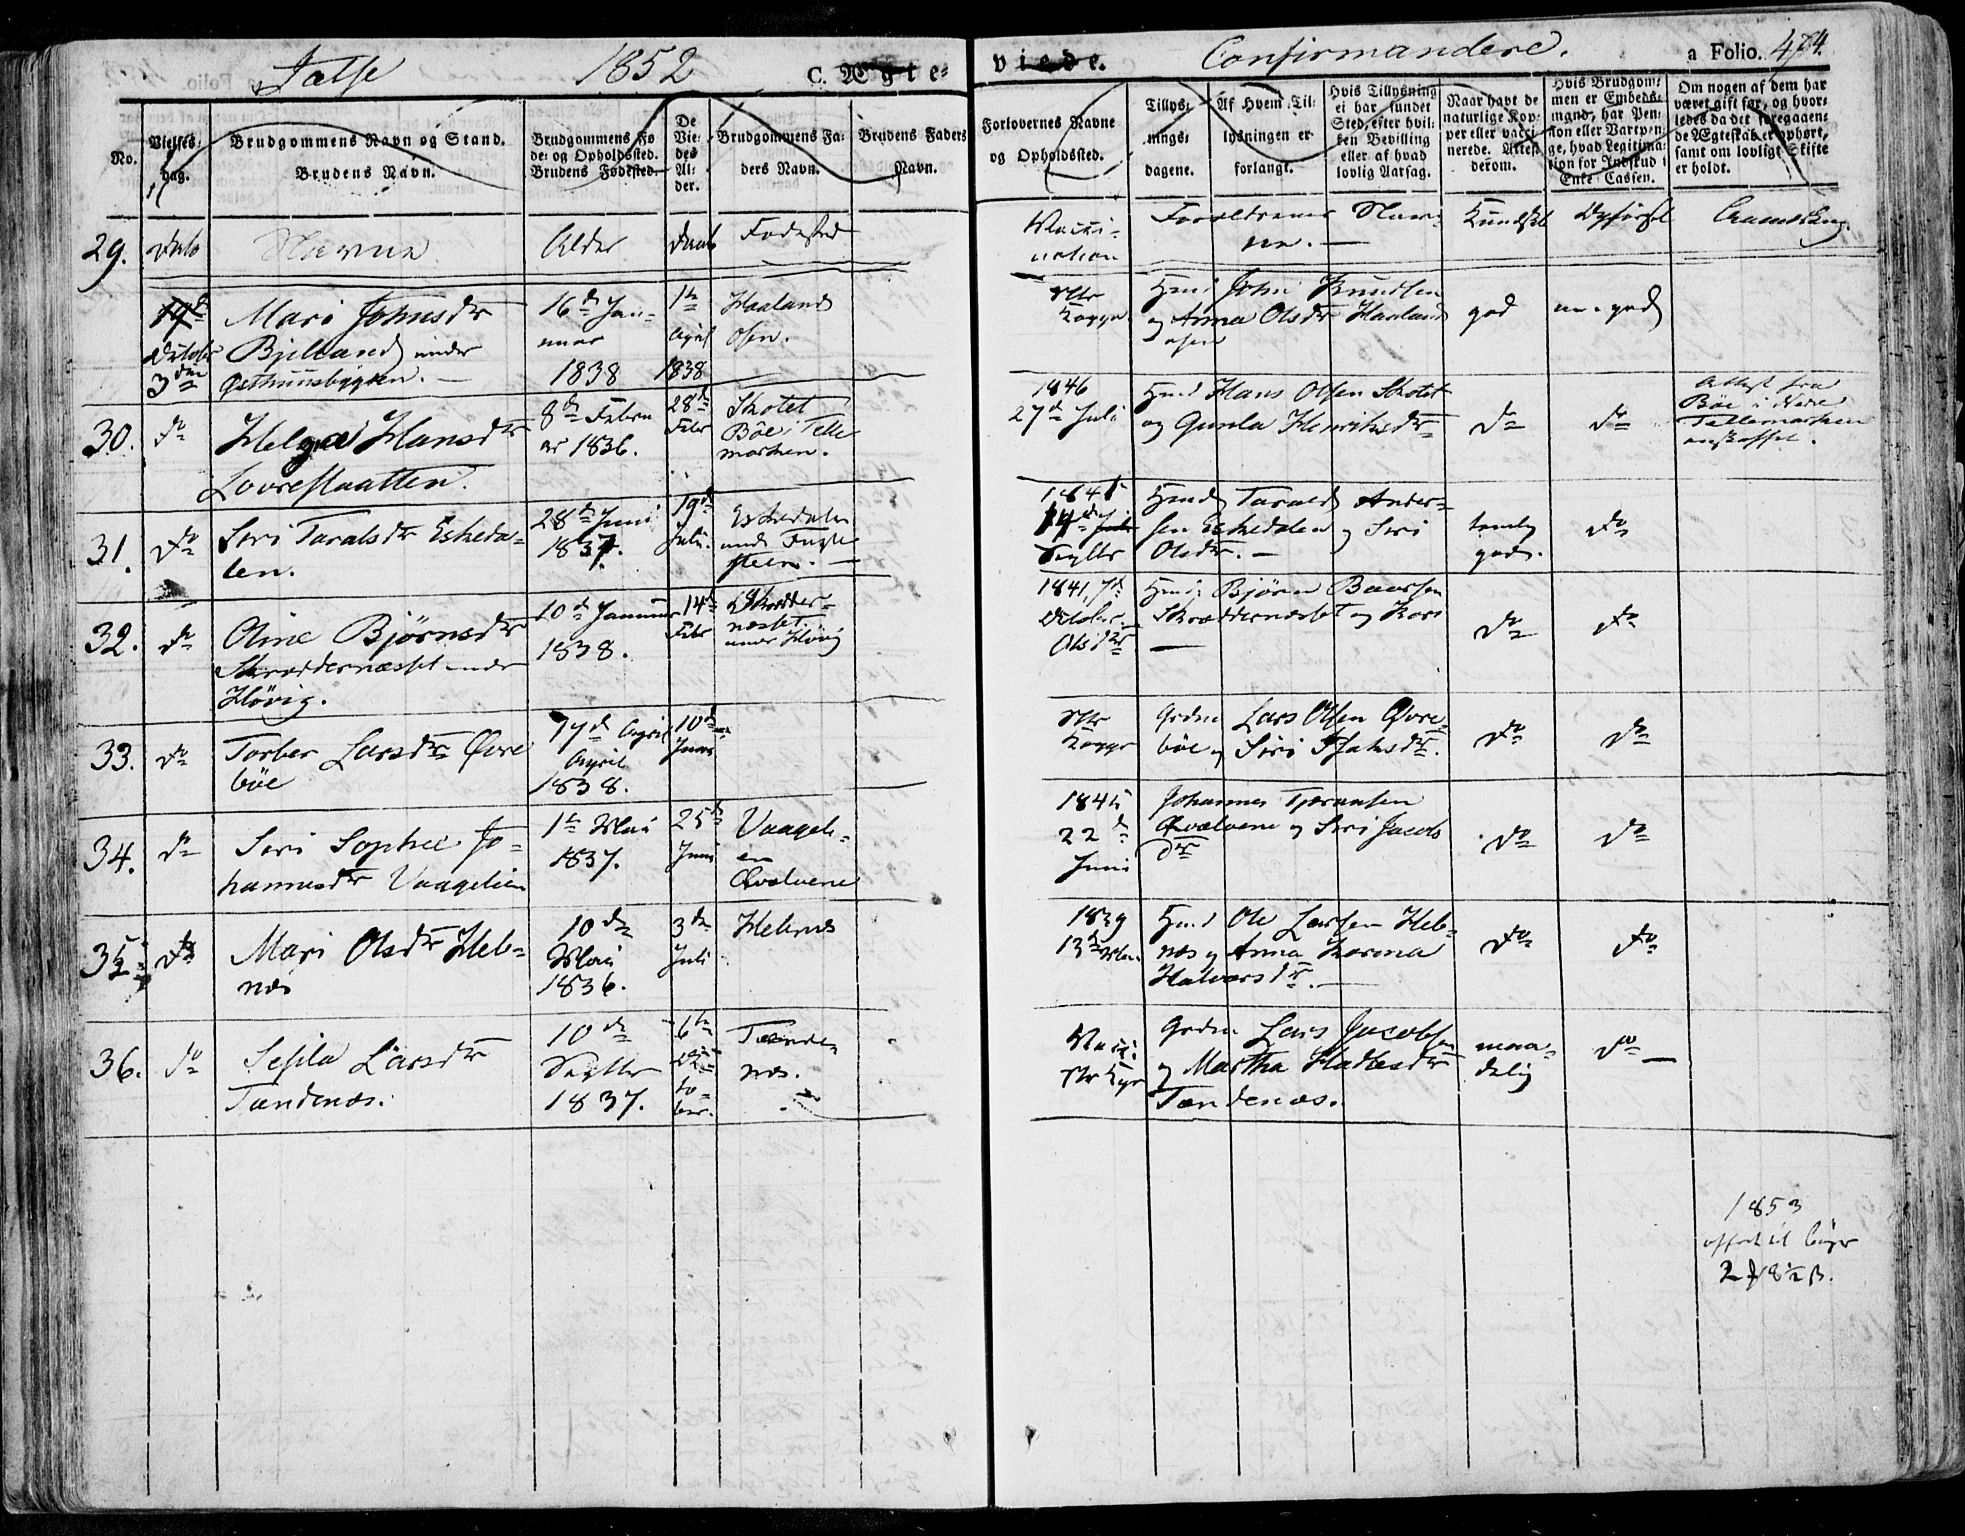 Jælse 1852 C. Ægte-
viede. Confirmandere. a Folio. 474.
No.
Vielses-
dag.
Brudgommens Navn og Stand.
Brudens Navn.
Brudgommens Fø
de- og Opholdssted.
Brudens Fødested.
De
Vie-
des
Al-
der.
Brudgommens Fa-
ders Navn.
Brudens Faders
Navn.
Forlovernes Navne
og Opholdssted.
Tillys-
nings-
dagene.
Af Hvem Til-
lysningen er
forlangt.
Hvis Tillysning
ei har fundet
Sted, efter hvil-
ken Bevilling
eller af hvad
lovlig Aarsag.
Naar havt de
naturlige Kop-
per eller vacci
nerede. Attest
derom.
Hvis Brudgom-
men er Embeds-
mand, har Pen-
sion eller Vartpen-
ge, hvad Legitima-
tion for Indskud i
Enke-Cassen.
Om nogen af dem har
været gift før, og hvor-
ledes da det foregaaen-
de Ægteskab er ophørt,
samt om lovligt Skifte
er holdt.
29. Dato Navne Alder Daab Fødested
Vacci-
nation
Forældrenes Nav-
ne. —
Kundskab Opførsel Anmærkning.
19de
October
3die
Mari Johnsdr
Bjelland under
Østhuusbygden. —
16de Jan-
uar
1838
1te
April
1838
Haaland
Osen.
Ntr
Kopper
Hmd John Knudsen
og Anna Olsdr Haaland
Osen
god meget god
30. do
Helga Hansdr
Lovrestaatten.
8de Febru
ar 1836.
28de
Febr
Skotet
Bøe i Telle
marken.
1846
27de Juli
Hmd Hans Olsen Skotet
og Gunla Henriksdr
do do
Attest fra
Bøe i Nedre
Tellemarken
anskaffet.
31. do
Siri Taralsdr Eskeda-
len.
28de Juni
1837.
19de
Juli.
Eskedalen
under
steen. —
1845
14de
Septbr
Hmd Tarald Ander-
sen Eskedalen og Siri
Olsdr. —
temlig
god. do
32. do
Oline Bjørnsdr
Skræddernæsset under
Høvig.
10de Januar
1838.
14de
Febr
Skrædder-
næsset
under Høvig
1841, 7de
October.
Hmd: Bjørn Baarsen
Skræddernæsset og Kari
Olsdr —
do do
33. do
Torber Larsdr Øvre
bøe
17de April
April
1838.
10de
Juni
Ntr
Kopper
Grdm Lars Olsen Øvre-
bøe og Siri Isaksdr.
do do
34. do
Siri Sophie Jo-
hannesdr Vaagelien
1te Mai
1837.
25de
Juni
Vaageli-
en
Qvalvene
1845
22de
Juni
Johannes Tjeransen
Qvalvene og Siri Jacobs
dr
do do
35. do
Mari Olsdr Heb-
næs
10de
Mai
1836.
3die
Juli
Hebnæs
1839
13de Mai
Hmd Ole Larsen Heb-
næs og Anna Karina
Halvorsdr. —
do do
36. do
Sesila Larsdr
Tændenæs.
10de
Septbr
1837.
6te
Octo-
ber.
Tænde-
næs.
Vacc:
Grdm Lars Jacobsen
og Martha
Tændenæs.
maa-
delig do —
1853
offret til Cajer
2 18½ ß.